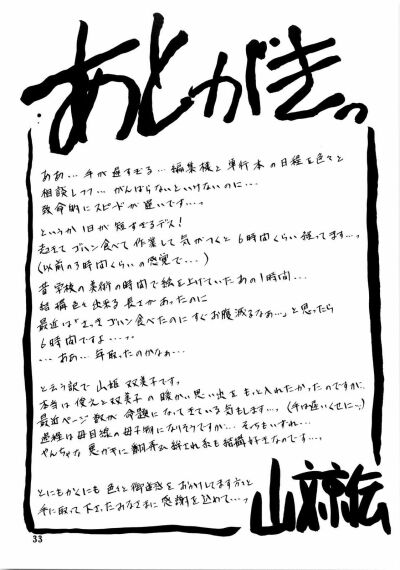 あとがきっ
ああ…手が遅すぎる…編集様と単行本の日程を色々と
相談しつつ…がんばらないといけないのに…
致命的にスピードが遅いです…っ
というか1日が短すぎるデス!
起きてゴハン食べて作業して気がつくと6時間くらい経ってます…っ
(以前の3時間くらいの感覚で…)
昔学校の美術の時間で絵を上げていたあの1時間…
結構色々出来る長さがあったのに
最近は「さっきゴハン食べたのにすぐお腹減るなあ…」と思ったら
6時間ですよ…っ
…ああ…年取ったのかなぁ…
と云う訳で山姫双美子です。
本当は俊えと双美子の暖かい思い出をもっと入れたかったのですが、
最近ページ数が命題になってきている気もします…。(手は遅いくせに…)
過程は母目線の母子物になりそうですが…そちらもいずれ…
やんちゃな悪ガキに翻弄
も結構好きなのです…っ
とにもかくにも色々と御迷惑をおかけします方々と
手に取って下さったみなさまに感謝を込めて…っ
山京伝
33